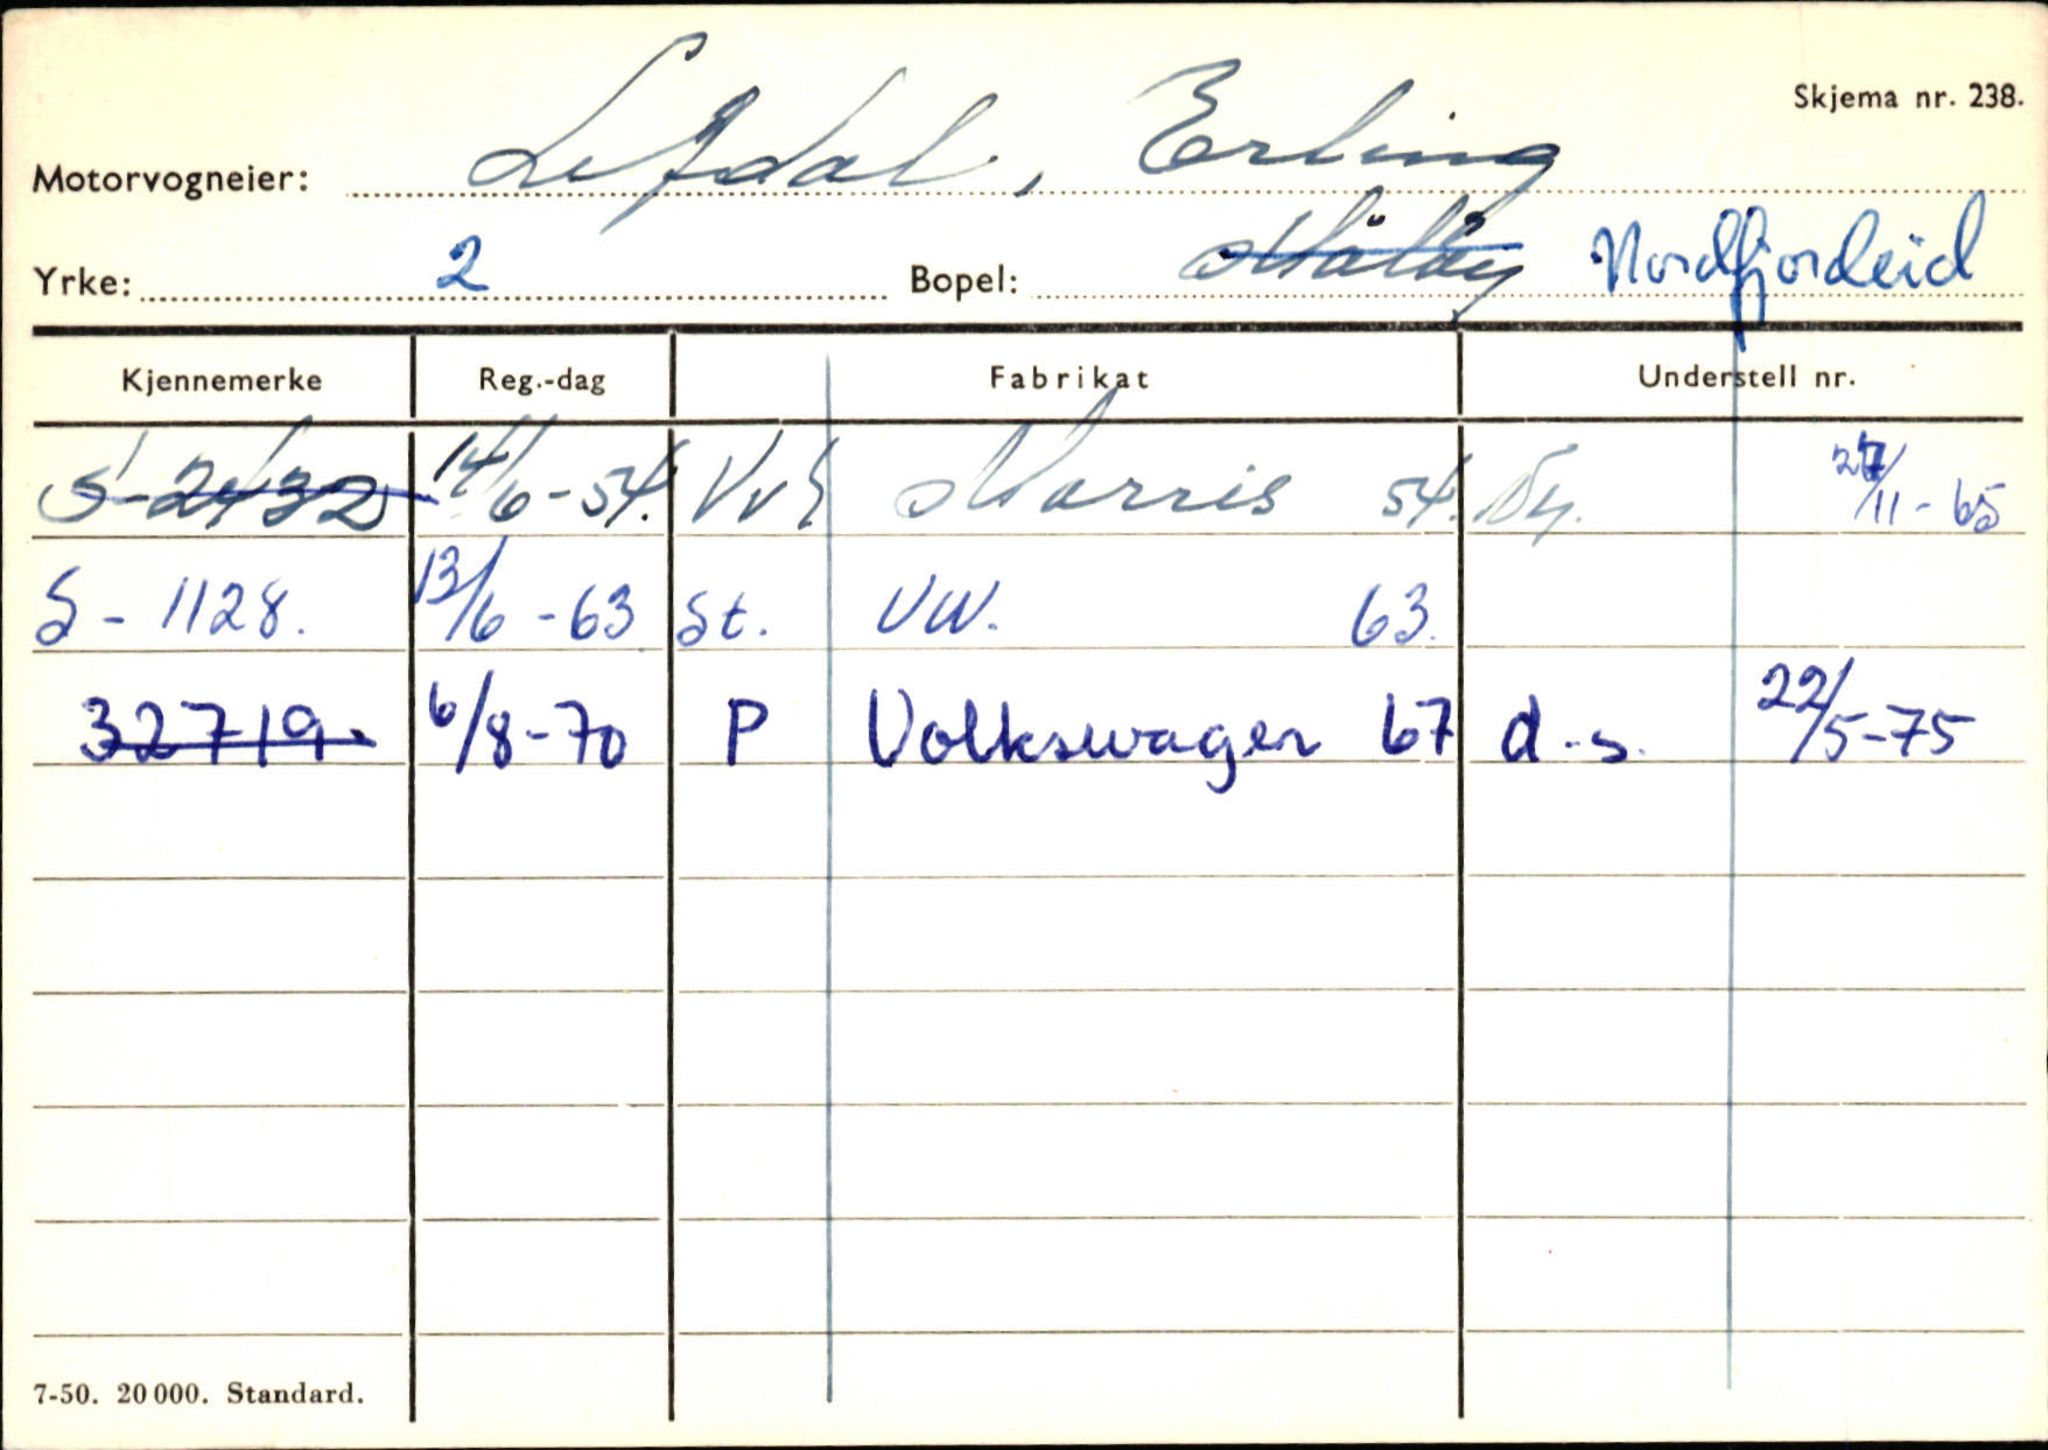 Skjema nr. 238.
Motorvogneier: Lefdal, Erling
Yrke: 2 Bopel: Måløy Nordfjordeid
Kjennemerke Reg.-dag Fabrikat Understell nr.
S-2432 14/6-54. Vv Morris 54. Ny. 27/11-65
S-1128. 13/6-63 St. VW. 63.
32719. 6/8-70 P Volkswagen 67 d.s. 22/5-75
7-50. 20 000. Standard.